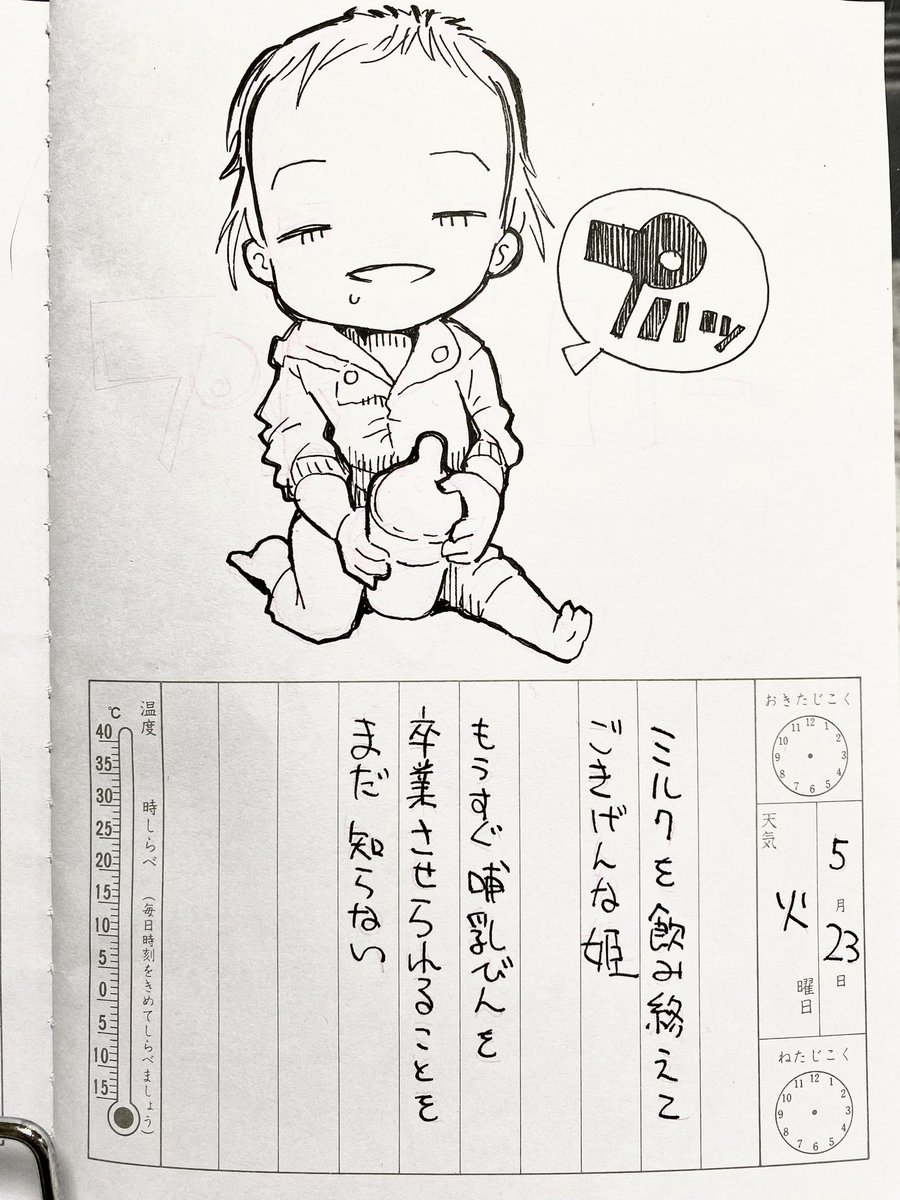 プハッ
おきたじこく
12
1
2
3
4
5
6
7
8
9
10
11
5月23日
天気
火曜日
ねたじこく
12
1
2
3
4
5
6
7
8
9
10
11
ミルクを飲み終えて
ごきげんな姫
もうすぐ哺乳びんを
卒業させられることを
まだ知らない
温度 時しらべ (毎日時刻をきめてしらべましょう)
℃
40
35
30
25
20
15
10
5
0
5
10
15